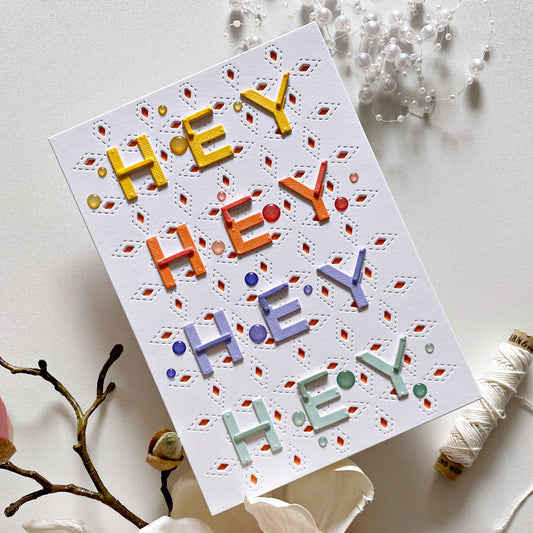 HEY
HEY
HEY
HEY